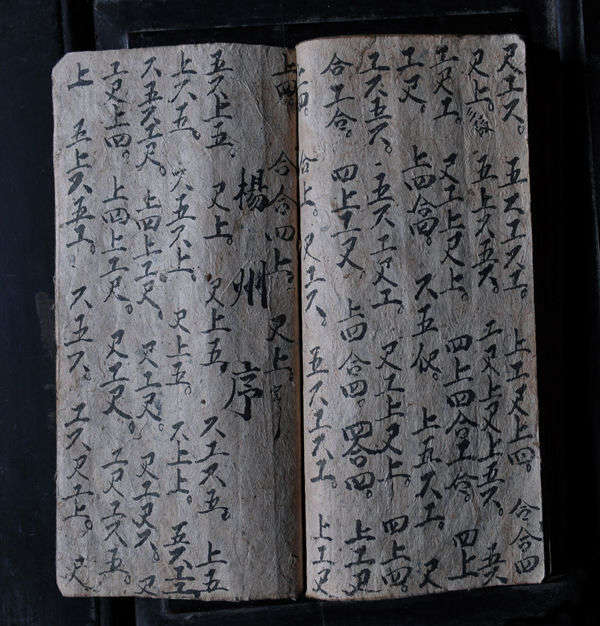 尺工六。五六工六工。上工尺上四。合合四
尺上。五上六五六。工尺上尺上五六。五六
工尺工。尺工上尺上。四上四合工合。四上
工尺。上四合。六五亿。上五六工。尺
工六五六。五六工尺工。尺工上尺上。四上四。
合工合。四上工尺 上四合四。四合四。上工尺
合上。尺工六。五六工六工。上工尺
上四。合合四上。尺上。
楊州序
五六上五。尺上。尺上五。六工六五。上五
上六五。六五六上。尺上五。六上上。五六工
六五六工尺。上四上工尺。尺工尺。尺工尺六。尺
工尺上四。上四上工尺。尺工尺。工尺工六五。
上 五上六五工。六五六。工六尺工上。尺